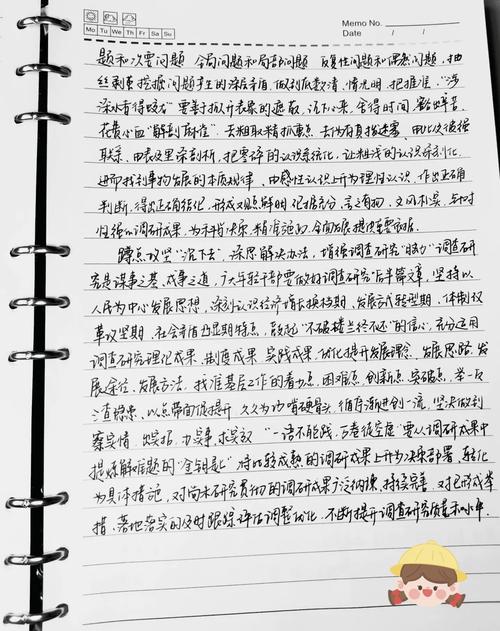 Memo No.
Mo Tu We Th Fr Sa Su
Date / /
题和次要问题 全局问题和局部问题 反复性问题和偶然问题，抽
丝剥茧挖掘问题产生的深层矛盾，做到底数清、情况明、把握准，“涉
深水者得蛟龙”要善于拨开表象的遮蔽，沉下心来，舍得时间，豁出辛苦
花费心血“解剖麻雀”去粗取精抓重点 去伪存真拨迷雾 由此及彼强
联系，由表及里深剖析，把零碎的认识系统化，让粗浅的认识深刻化
进而找到事物发展的本质规律、由感性认识上升为理性认识，作出正确
判断，得出正确结论，形成观点鲜明 论据充分、言之有物、文风朴实、针对
性强的调研成果，为科学决策、精准施策、全面发展提供重要依据。
蹲点攻坚“沉下去”深思解决办法，增强调查研究“脑力”调查研
究是谋事之基、成事之道，广大年轻干部要做好调查研究“后半篇文章，坚持以
人民为中心发展思想，深刻认识经济增长换挡期、发展方式转型期、体制改
革攻坚期、社会矛盾凸显期特点，鼓起“不破楼兰终不还”的信心，充分运用
调查研究理论成果、制度成果 实践成果，优化提升发展理念、发展思路、发
展途径、发展方法，找准基层工作的着力点、困难点、创新点、突破点，举一反
三查隐患、以点带面促提升 久久为功啃硬骨头，循序渐进创一流，坚决做到
察实情 出实招，办实事、求实效 “一语不能践，万卷徒空虚”要从调研成果中
提炼解难题的“金钥匙”对比较成熟的调研成果上升为决策部署、转化
为具体措施，对尚未研究透彻的调研成果广泛听取、持续完善，对已形成举
措、落地落实的及时跟踪评估调整优化，不断提升调查研究质量和水平